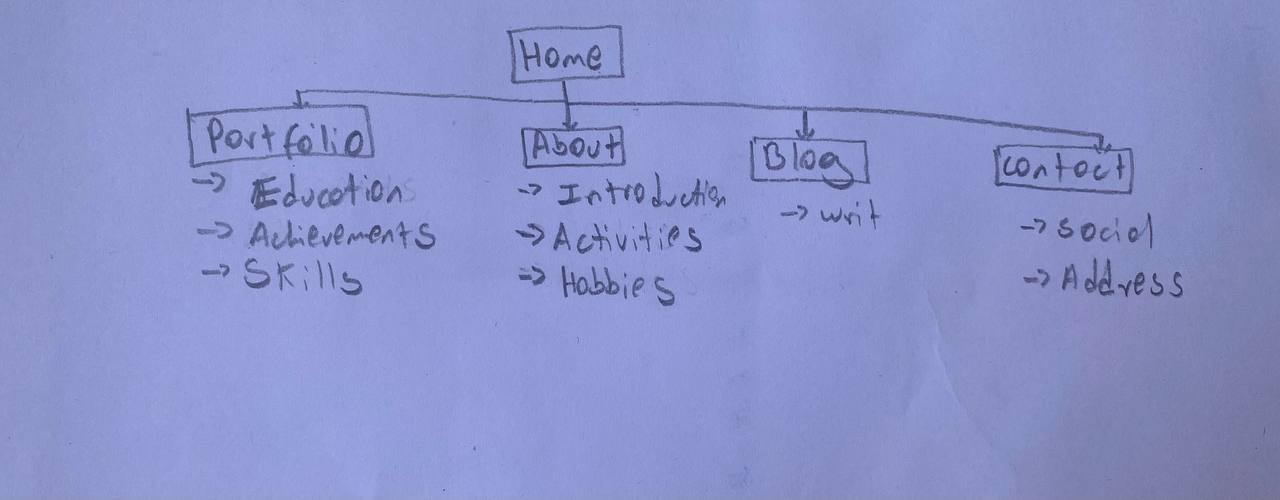 Home
Portfolio
-> Education
-> Achievements
-> Skills
About
-> Introduction
-> Activities
-> Hobbies
Blog
-> writ
Contact
-> social
-> Address